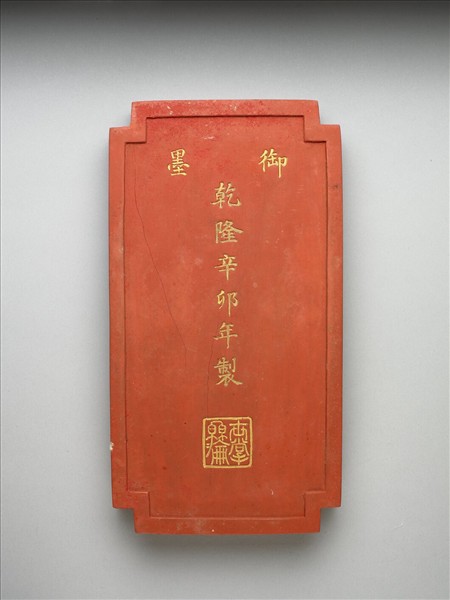 御墨
乾隆辛卯年製